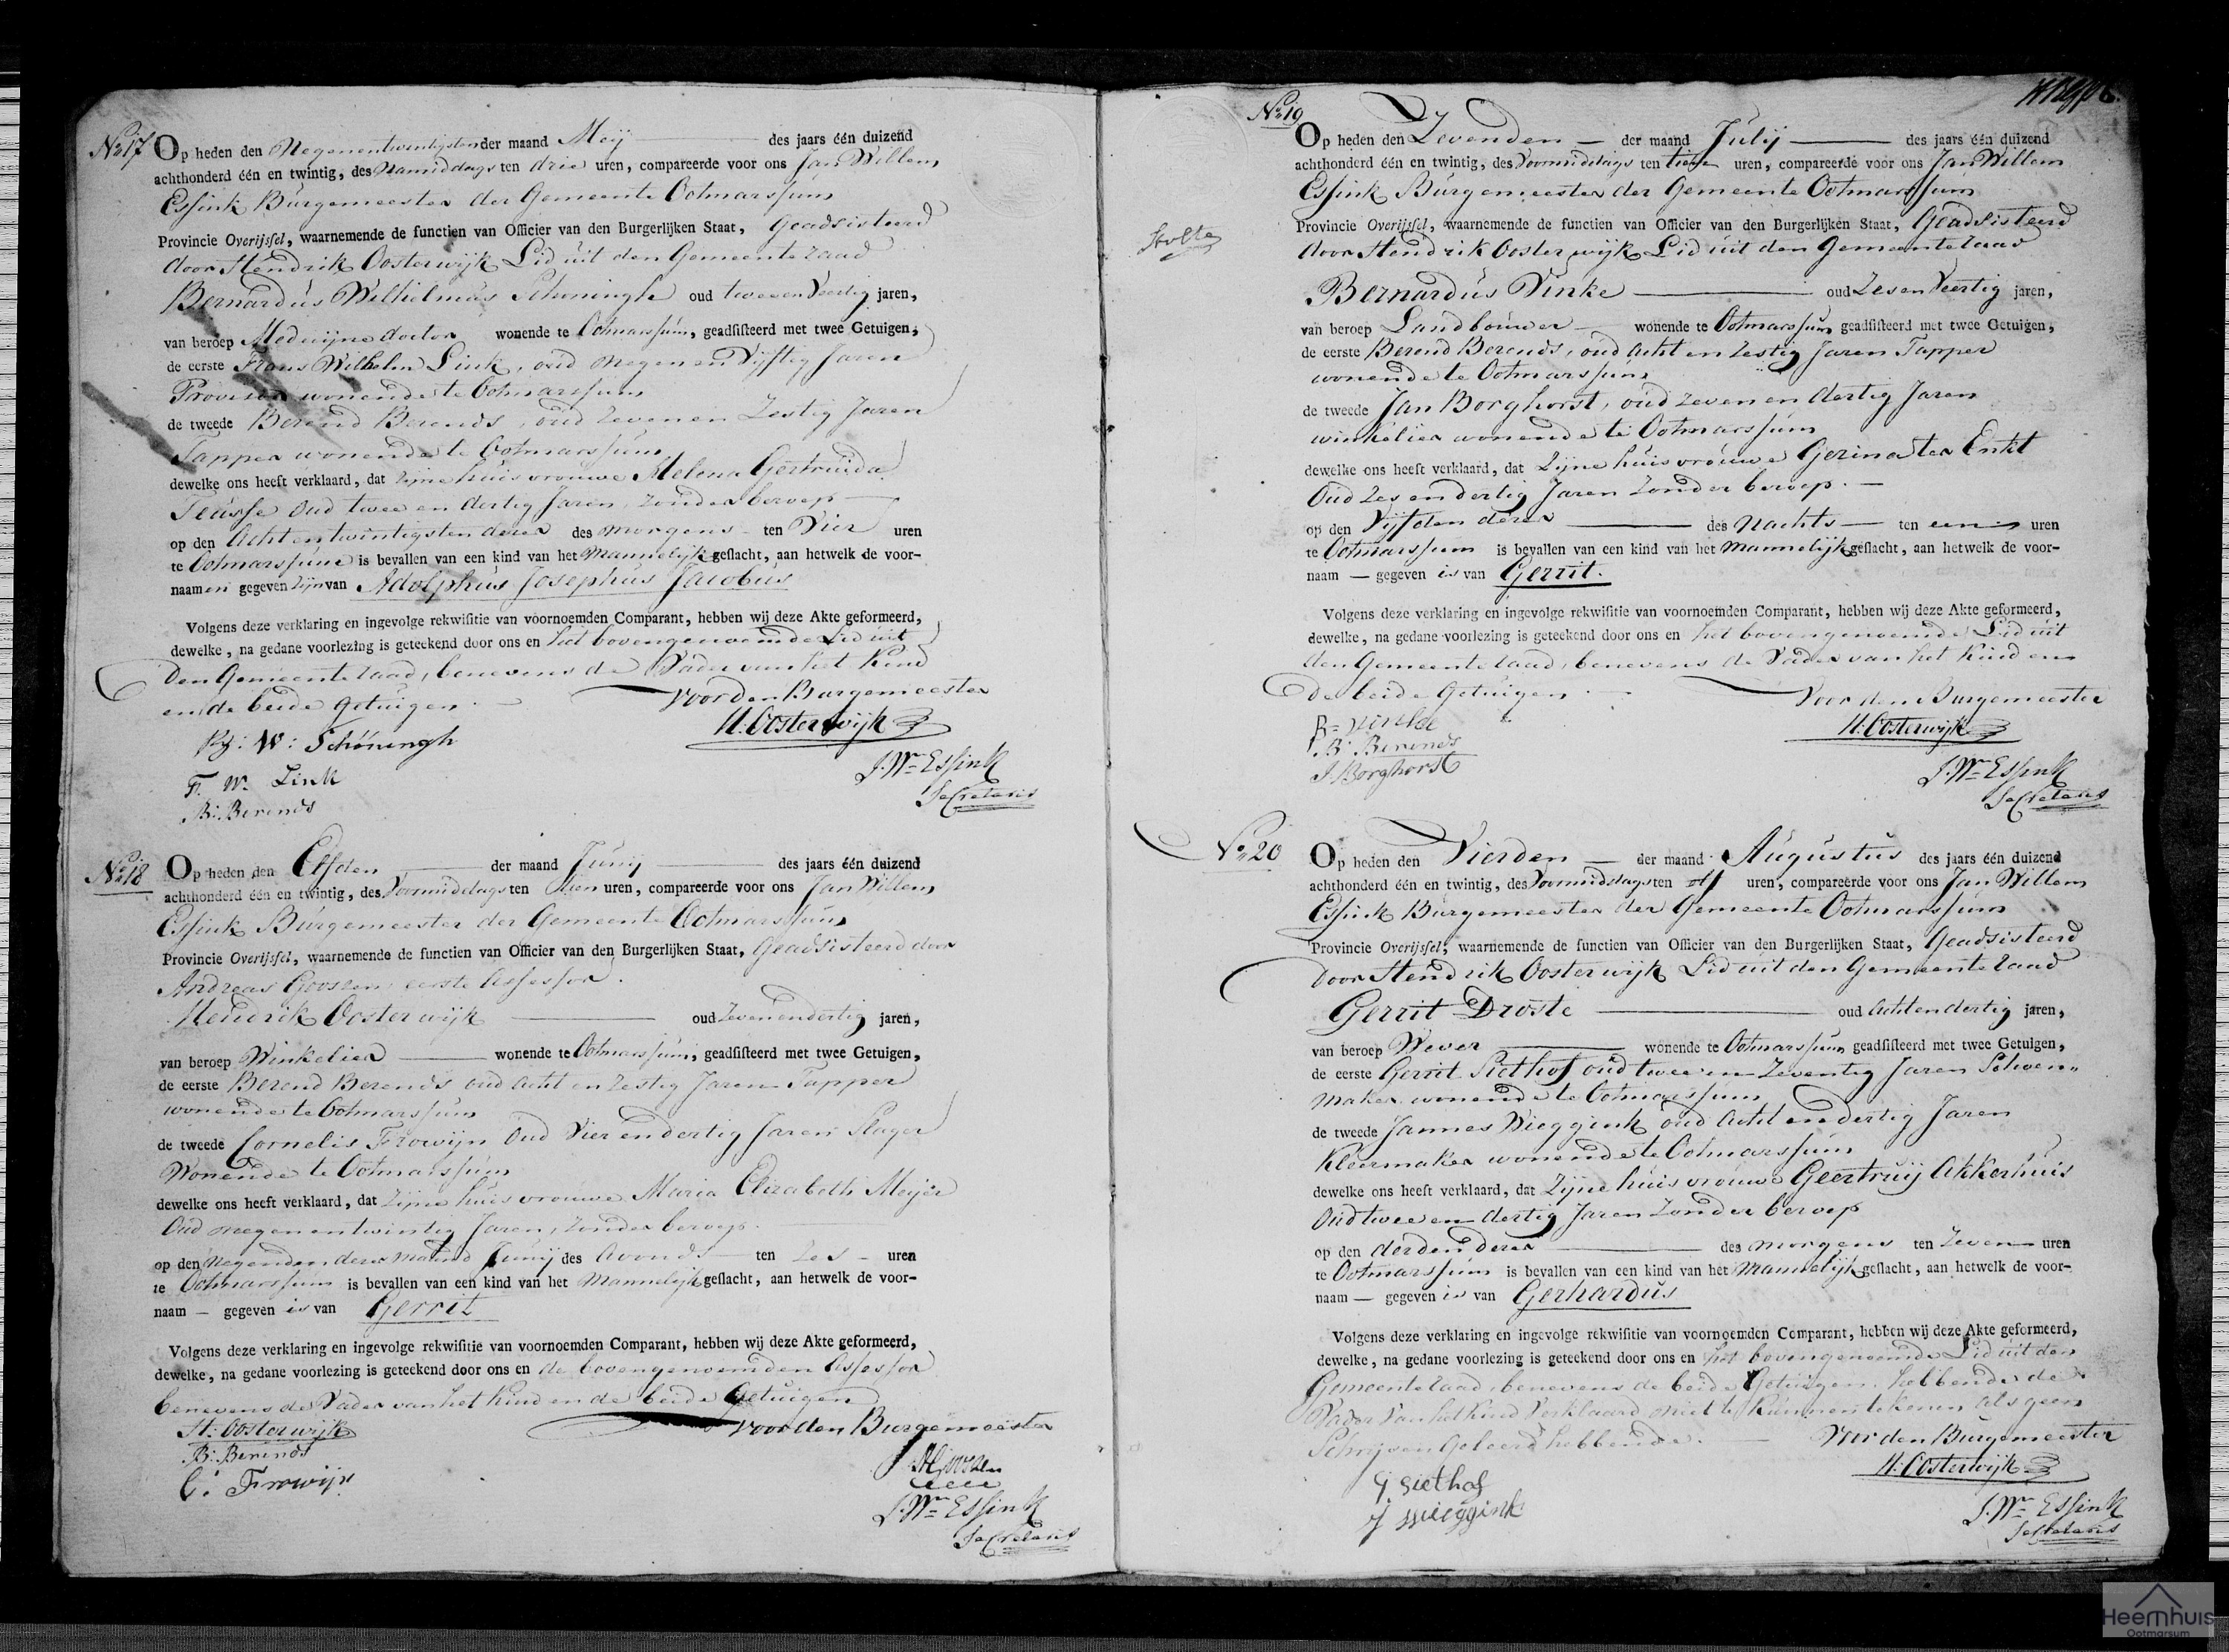 No 17 Op heden den Negenentwintigsten der maand Meij des jaars één duizend
achthonderd één en twintig, des Namiddags ten drie uren, compareerde voor ons Jan Willem
Essink Burgemeester der Gemeente Ootmarssum
Provincie Overijssel, waarnemende de functien van Officier van den Burgerlijken Staat, Geadsisteerd
door Hendrik Oosterwijk Lid uit den Gemeente raad
Bernardus Wilhelmus Schoningh oud tweeenveertig jaren,
van beroep Medecijne doctor wonende te Ootmarssum, geadsisteerd met twee Getuigen,
de eerste Frans Wilhelm Link, oud negen en vijftig Jaren
Provisor wonende te Ootmarssum
de tweede Berend Berends, oud zeven en Zestig Jaren
Tapper wonende te Ootmarssum
dewelke ons heeft verklaard, dat zijne huisvrouwe Helena Gertruida
Teusse oud twee en dertig Jaren, zonder beroep
op den Achtentwintigsten dezer des morgens ten Vier uren
te Ootmarssum is bevallen van een kind van het Mannelijk geslacht, aan hetwelk de voor-
naamen gegeven zijn van Adolphus Josephus Jacobus
Volgens deze verklaring en ingevolge rekwisitie van voornoemden Comparant, hebben wij deze Akte geformeerd,
dewelke, na gedane voorlezing is geteekend door ons en het bovengenoemde Lid uit
den Gemeente raad, benevens de Vader van het Kind
en de beide Getuigen.
Voor den Burgemeester
H. Oosterwijk
B: W: Schöningh
J. Wm Essink
Secretaris
F. W. Link
B: Berends
No 18 Op heden den Elfden der maand Junij des jaars één duizend
achthonderd één en twintig, des Voormiddags ten tien uren, compareerde voor ons Jan Willem
Essink Burgemeester der Gemeente Ootmarssum
Provincie Overijssel, waarnemende de functien van Officier van den Burgerlijken Staat, Geadsisteerd door
Andreas Goossen eerste Assessor.
Hendrik Oosterwijk oud Zevenendertig jaren,
van beroep Winkelier wonende te Ootmarssum, geadsisteerd met twee Getuigen,
de eerste Berend Berends oud acht en Zestig Jaren Tapper
wonende te Ootmarssum
de tweede Cornelis Frowijn Oud Vier en dertig Jaren Slager
Wonende te Ootmarssum
dewelke ons heeft verklaard, dat zijne huisvrouwe Maria Elizabeth Meijer
Oud negenentwintig Jaren, zonder beroep.
op den Negenden dezer maand Junij des Avonds ten Zes uren
te Ootmarssum is bevallen van een kind van het Mannelijk geslacht, aan hetwelk de voor-
naam — gegeven is van Gerrit
Volgens deze verklaring en ingevolge rekwisitie van voornoemden Comparant, hebben wij deze Akte geformeerd,
dewelke, na gedane voorlezing is geteekend door ons en de bovengenoemden Assessor
benevens de Vader van het Kind en de beide Getuigen
H: Oosterwijk
Voor den Burgemeester
B: Berends
C: Frowijn
J. Wm Essink
Secretaris
No 19
Op heden den Zevenden der maand Julij des jaars één duizend
achthonderd één en twintig, des Voormiddags ten tien uren, compareerde voor ons Jan Willem
Essink Burgemeester der Gemeente Ootmarssum
Provincie Overijssel, waarnemende de functien van Officier van den Burgerlijken Staat, Geadsisteerd
door Hendrik Oosterwijk Lid uit den Gemeente raad
Stolte
Bernardus Vinke oud Zesenveertig jaren,
van beroep Landbouwer wonende te Ootmarssum geadsisteerd met twee Getuigen,
de eerste Berend Berends, oud acht en zestig Jaren Tapper
wonende te Ootmarssum
de tweede Jan Borghorst, oud zeven en dertig Jaren
winkelier wonende te Ootmarssum
dewelke ons heeft verklaard, dat Zijne huisvrouwe Gezina ter Enkt
Oud Zes en dertig Jaren Zonder beroep.
op den Vijfden dezer des Nachts ten een uren
te Ootmarssum is bevallen van een kind van het Mannelijk geslacht, aan hetwelk de voor-
naam — gegeven is van Gerrit.
Volgens deze verklaring en ingevolge rekwisitie van voornoemden Comparant, hebben wij deze Akte geformeerd,
dewelke, na gedane voorlezing is geteekend door ons en het bovengenoemde Lid uit
den Gemeente raad, benevens de Vader van het Kind en
de beide Getuigen.
Voor den Burgemeester
B: Vinke
H: Oosterwijk
B: Berends
J. Borghorst
J. Wm Essink
Secretaris
No 20 Op heden den Vierden der maand Augustus des jaars één duizend
achthonderd één en twintig, des Voormiddags ten elf uren, compareerde voor ons Jan Willem
Essink Burgemeester der Gemeente Ootmarssum
Provincie Overijssel, waarnemende de functien van Officier van den Burgerlijken Staat, Geadsisteerd
door Hendrik Oosterwijk Lid uit den Gemeente raad
Gerrit Droste oud Achtendertig jaren,
van beroep Wever wonende te Ootmarssum geadsisteerd met twee Getuigen,
de eerste Gerrit Siethof oud twee en Zeventig Jaren Schoen„
maker wonende te Ootmarssum
de tweede Jannes Wieggink oud Acht en dertig Jaren
Kleermaker wonende te Ootmarssum
dewelke ons heeft verklaard, dat Zijne huisvrouwe Geertruij Akkerhuis
Oud twee en dertig Jaren Zonder beroep
op den derden dezer des morgens ten Zeven uren
te Ootmarssum is bevallen van een kind van het Mannelijk geslacht, aan hetwelk de voor-
naam — gegeven is van Gerhardus
Volgens deze verklaring en ingevolge rekwisitie van voornoemden Comparant, hebben wij deze Akte geformeerd,
dewelke, na gedane voorlezing is geteekend door ons en het bovengenoemde Lid uit den
Gemeente raad, benevens de beide Getuigen, hebbende de
Vader van het Kind Verklaard niet te Kunnen tekenen als geen
Schrijven Geleerd hebbende.
Voor den Burgemeester
H: Oosterwijk
G Siethof
J Wieggink
J. Wm Essink
Secretaris
Heemhuis
Ootmarsum